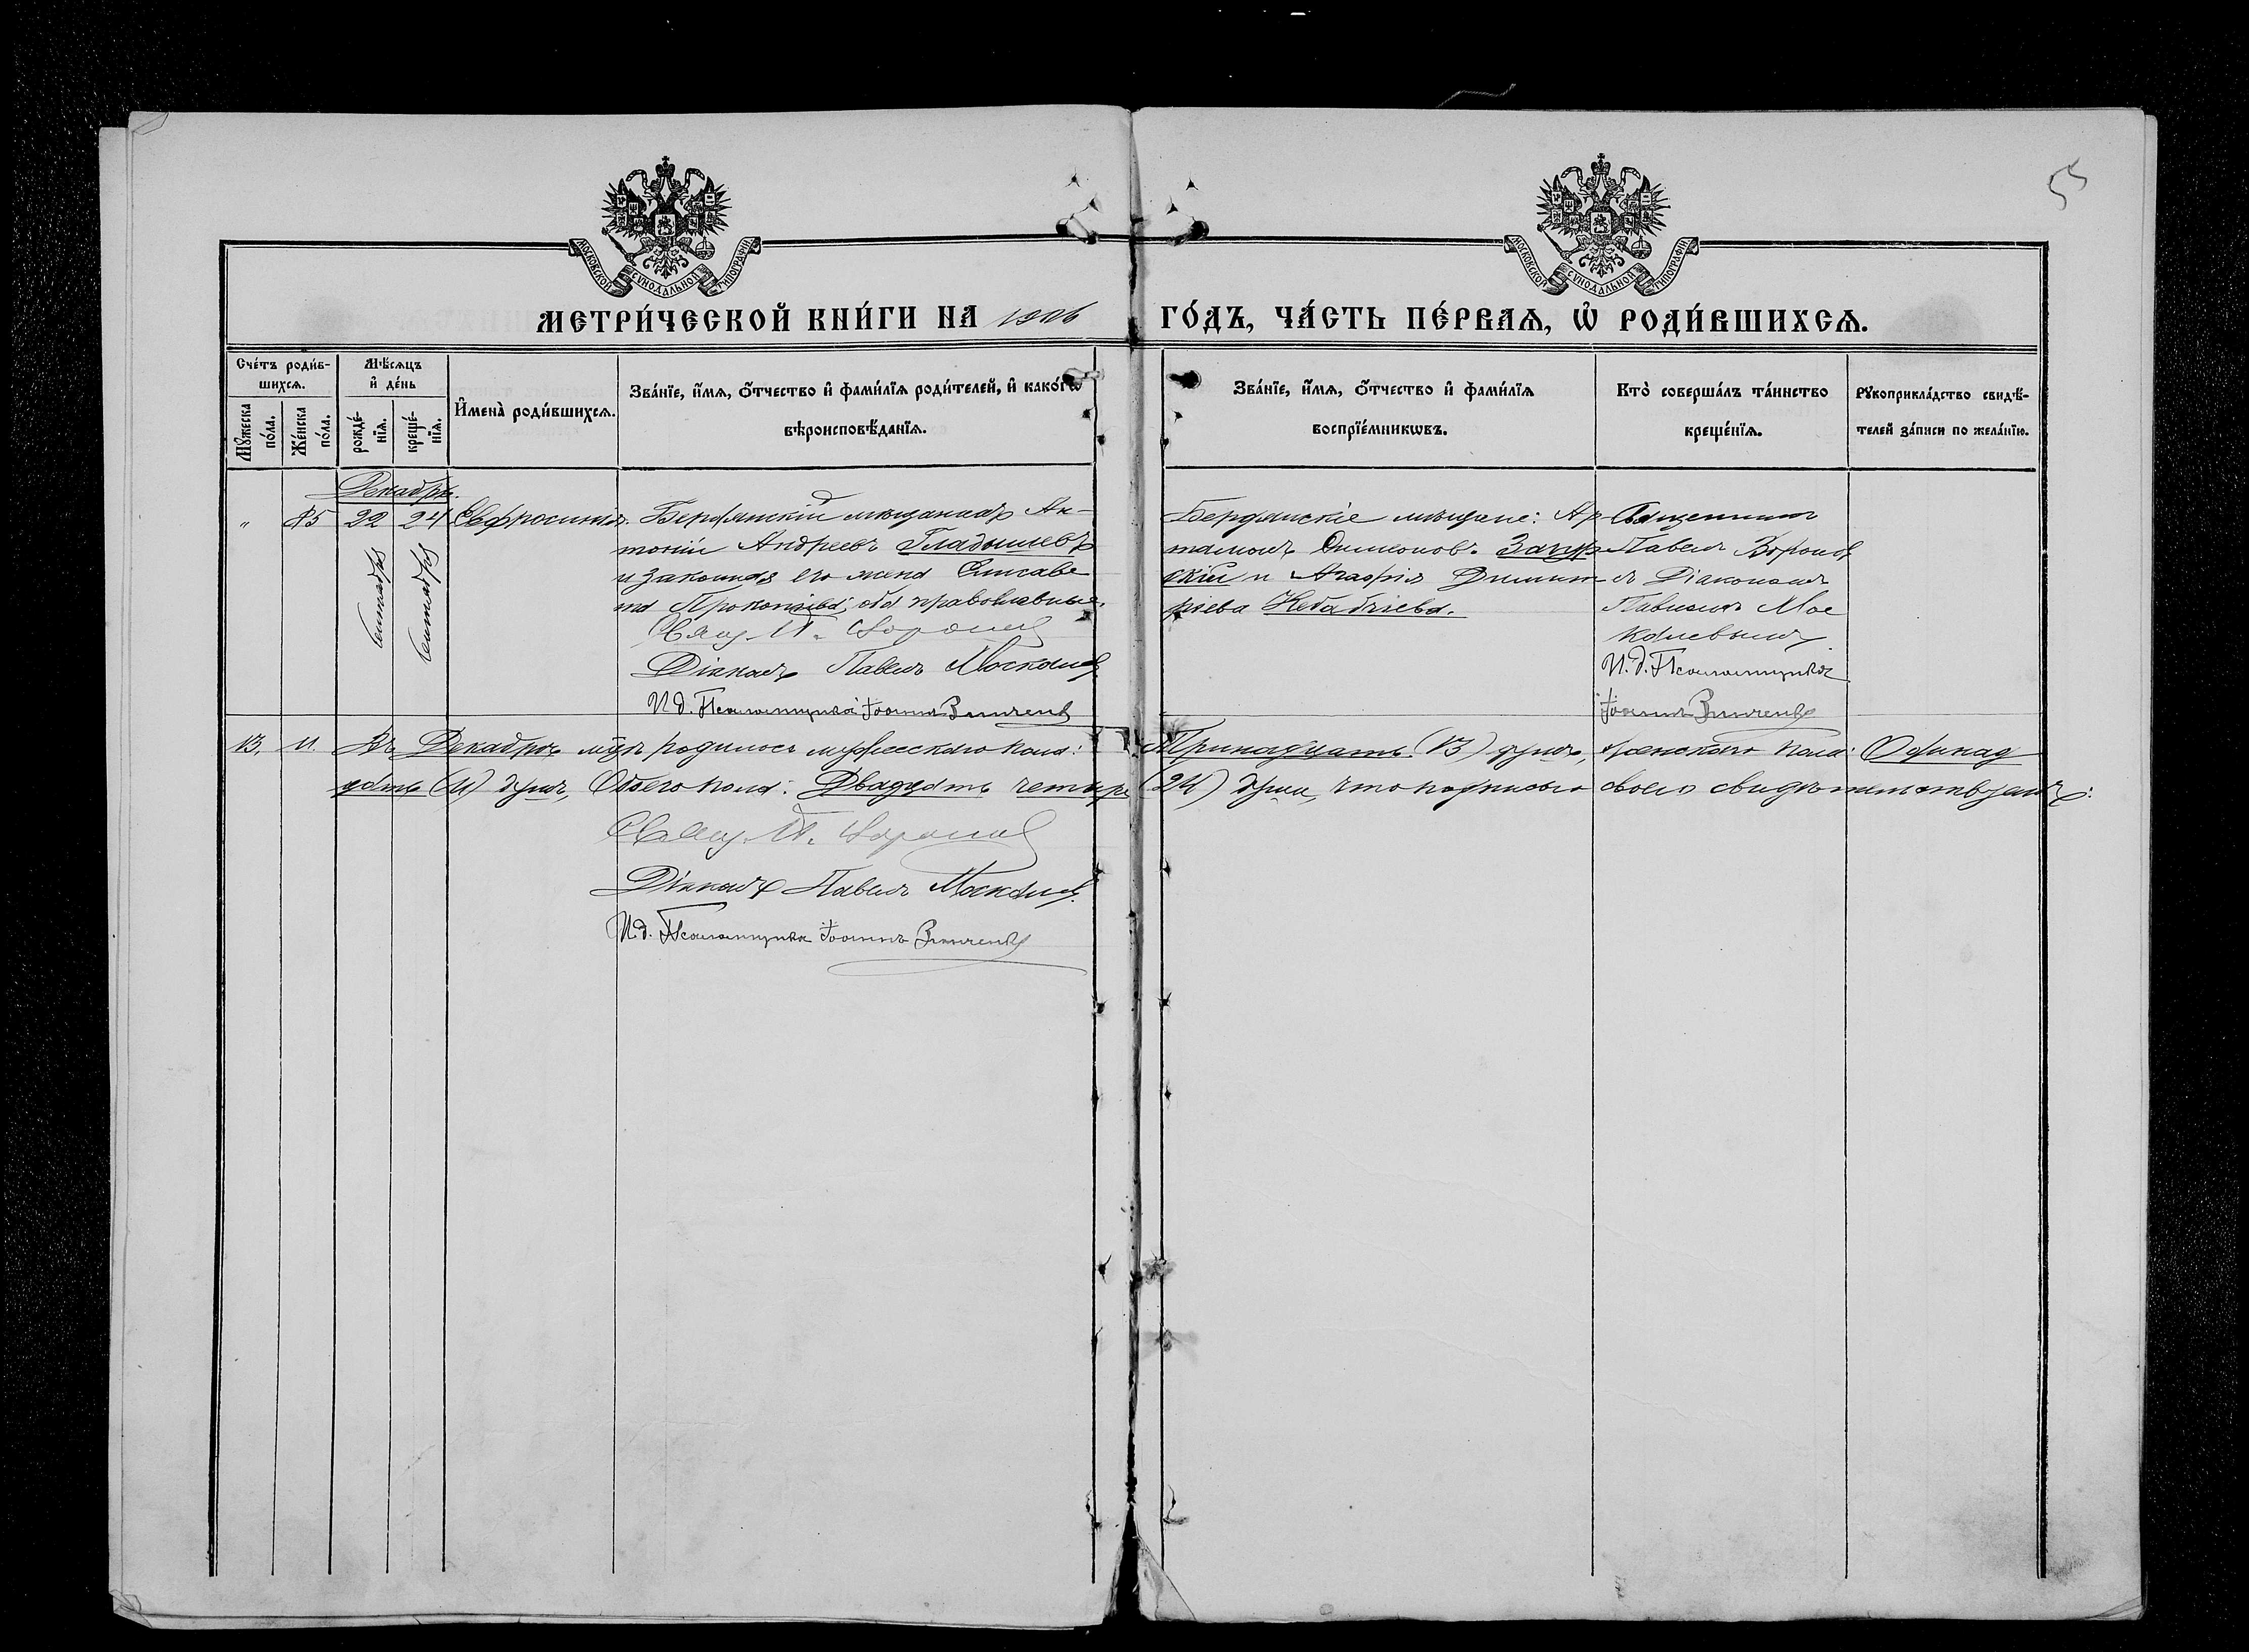 55
МОСКОВСКОЙ СѴНОДАЛЬНОЙ ТИПОГРАФІИ
МОСКОВСКОЙ СѴНОДАЛЬНОЙ ТИПОГРАФІИ
МЕТРИ́ЧЕСКОЙ КНИ́ГИ НА 1906 ГО́ДЪ, ЧА́СТЬ ПЕ́РВАѦ, Ѡ҆ РОДИ́ВШИХСѦ.
Сче́тъ роди́в-
шихсѧ.
Мꙋжеска по́ла.
Же́нска по́ла.
Мѣ́сѧцъ
и҆ де́нь
рожде́-
нїѧ.
креще́-
нїѧ.
И҆мена̀ роди́вшихсѧ.
Зва́нїе, и҆́мѧ, ѻ҆́тчество и҆ фами́лїѧ роди́телей, и҆ како́гѡ
вѣроисповѣ́данїѧ.
Зва́нїе, и҆́мѧ, ѻ҆́тчество и҆ фами́лїѧ
воспрїе́мникѡвъ.
Кто̀ соверша́лъ та́инство
креще́нїѧ.
Рꙋкоприкла́дство свидѣ́-
телей за́писи по жела́нїю.
Декабрь.
" 85 22 24 Евфросинія.
Сентября
Сентября
Бердянскій мѣщанинъ Ан-
тоній Андреевъ Гладышевъ
и законная его жена Елисаве
та Прокопіева, оба православные.
Свящ. П. Воронов
Діаконъ Павелъ Москалев
И. д. Псаломщика Іоаннъ Зинченко
Бердянскіе мѣщане: Ар-
тамонъ Симеонов.
скій и Агафія Димит-
ріева
Священникъ
Павелъ Воронов
съ Діакономъ
Павломъ Мос
калевымъ
И. д. Псаломщика
Іоаннъ Зинченко
13. 11. Въ Декабрѣ мцѣ родилось мужескаго пола: Тринадцать (13) душъ, женскаго пола: Одинад
цать (11) душъ, Обоего пола: Двадцать четыре (24) души, что подписью своею свидѣтельствуемъ:
Свящ. П. Воронов
Діаконъ Павелъ Москалев.
И. д. Псаломщика Іоаннъ Зинченко